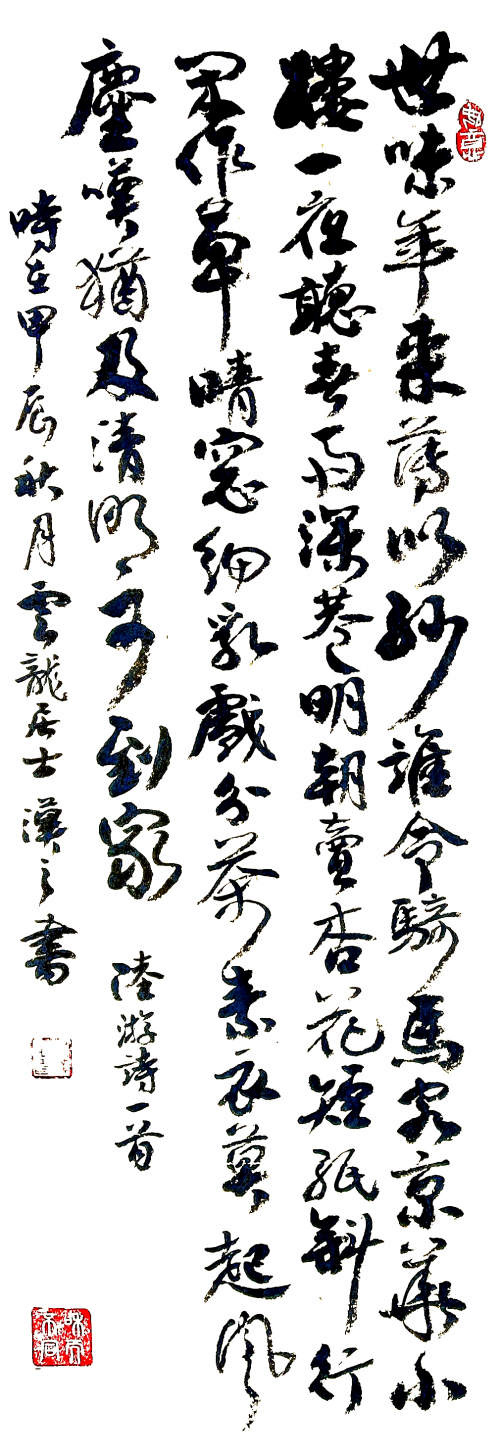 世味年来薄似紗誰令騎馬客京華小
樓一夜聽春雨深巷明朝賣杏花矮紙斜行
閑作草晴窓細乳戲分茶素衣莫起風
塵嘆猶及清明可到家
陸游詩一首
時在甲辰秋月雲龍居士漢之書